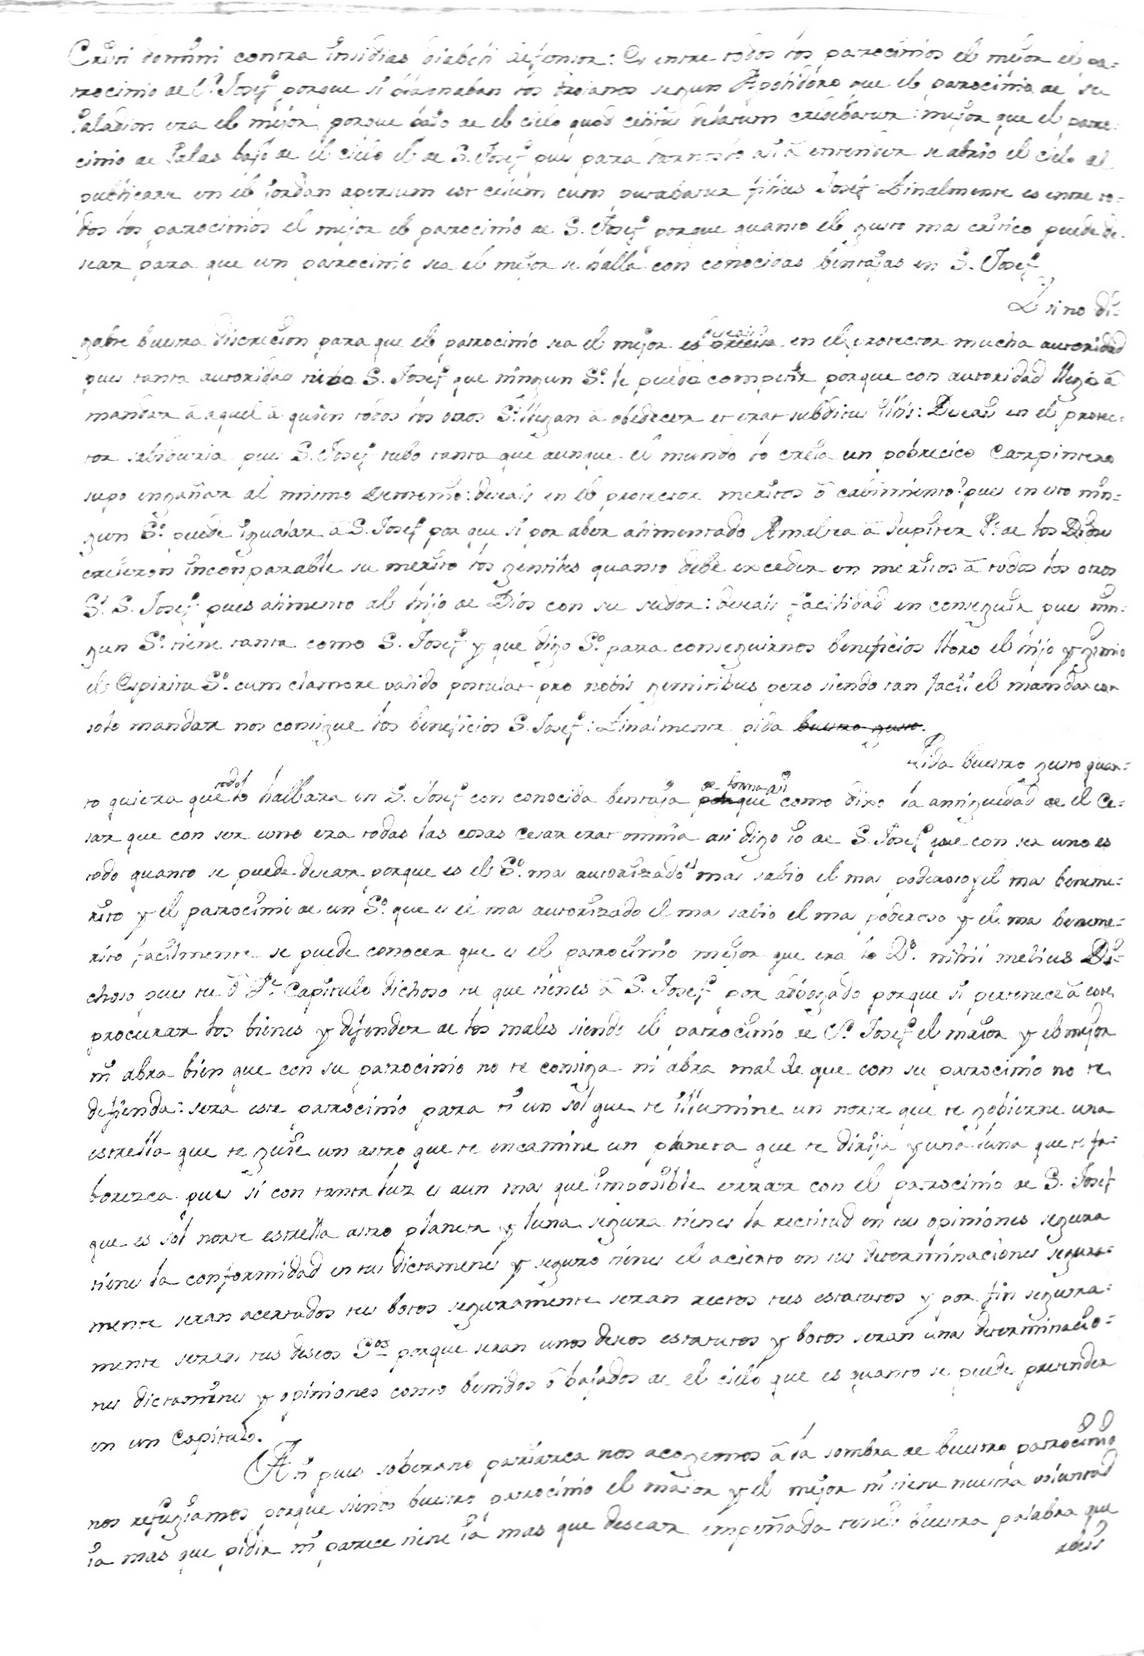 Cristi domini contra insidias diaboli defensor: Es entre todos los patrocinios el mejor el pa-
trocinio de Sn. Josef porque si blasonaban los troianos segun Apolidoro que el patrocinio de su
Paladion era el mejor porque bajo de el cielo quod celitus delatum credebatur: mejor que el patro-
cinio de Palas bajo de el cielo el de S. Josef pues para entender se abrio el cielo al
publicarse en el Jordan apertum est celum cum putabatur filius Josef Finalmente es entre to-
dos los patrocinios el mejor el patrocinio de S. Josef porque quanto el gusto mas critico puede de-
sear para que un patrocinio sea el mejor se halla con conocidas bentajas en S. Josef
I sino di-
game buestra discrecion para que el patrocinio sea el mejor es en el protector mucha autoridad
pues tanta autoridad tubo S. Josef que ningun Sto. le puede competir porque con autoridad llego a
mandar a aquel a quien todos los otros Stos. llegan a obedecer et erat subditus illis: Deseais en el protec-
tor sabiduria pues S. Josef tubo tanta que aunque el mundo lo creia un pobrecico Carpintero
supo engañar al mismo Demonio: deseais en el protector meritos o cabimiento? pues en esto nin-
gun Sto. puede igualar a S. Josef por que si por aber alimentado Amaltea a Jupiter Pe. de los Dioses
creieron incomparable su merito los gentiles quanto debe exceder en meritos a todos los otros
Stos. S. Josef pues alimento al hijo de Dios con su sudor: deseais facilidad en conseguir pues nin-
gun Sto. tiene tanta como S. Josef y que digo Sto. para conseguirnos beneficios lloro el hijo y gimio
el Espiritu Sto. cum clamore valido postulat pro nobis gemitibus pero siendo tan facil el mandar con
solo mandar nos consigue los beneficios S. Josef: Finalmente pida buestro gusto
Pida buestro gusto quan-
to quiera que todo lo hallara en S. Josef con conocida bentaja porque como dixo la antiguedad de el Ce-
sar que con ser uno era todas las cosas Cesar erat omnia asi digo io de S. Josef que con ser uno es
todo quanto se puede desear porque es el Sto. mas autorizado el mas sabio el mas poderoso y el mas beneme-
rito y el patrocinio de un Sto. que es el mas autorizado el mas sabio el mas poderoso y el mas beneme-
rito facilmente se puede conocer que es el patrocinio mejor que era lo 2o. nihil melius Di-
choso pues tu o Capitulo dichoso tu que tienes a S. Josef por abogado porque si pertenece a este
procurar los bienes y defender de los males siendo el patrocinio de Sn. Josef el maior y el mejor
ni abra bien que con su patrocinio no te consiga ni abra mal de que con su patrocinio no te
defienda: sera este patrocinio para ti un sol que te illumine un norte que te gobierne una
estrella que te guie un astro que te encamine un planeta que te dirija y una luna que te fa-
borezca pues si con tanta luz es aun mas que imposible errar con el patrocinio de S. Josef
que es sol norte estrella astro planeta y luna segura tienes la rectitud en tus opiniones segura
tienes la conformidad en tus dictamenes y seguro tienes el acierto en tus determinaciones segura-
mente seran acertados tus botos seguramente seran rectos tus estatutos y por fin segura-
mente seran tus deseos Stos. porque seran unos deseos estatutos y botos seran unas determinacio-
nes dictamenes y opiniones como benidos o bajados de el cielo que es quanto se puede pretender
en un Capitulo.
A ti pues soberano patriarca nos acogemos a la sombra de buestro patrocinio
nos refugiamos porque siendo buestro patrocinio el maior y el mejor ni tiene nuestra voluntad
ia mas que pidir ni parece tiene ia mas que desear empeñada teneis buestra palabra que